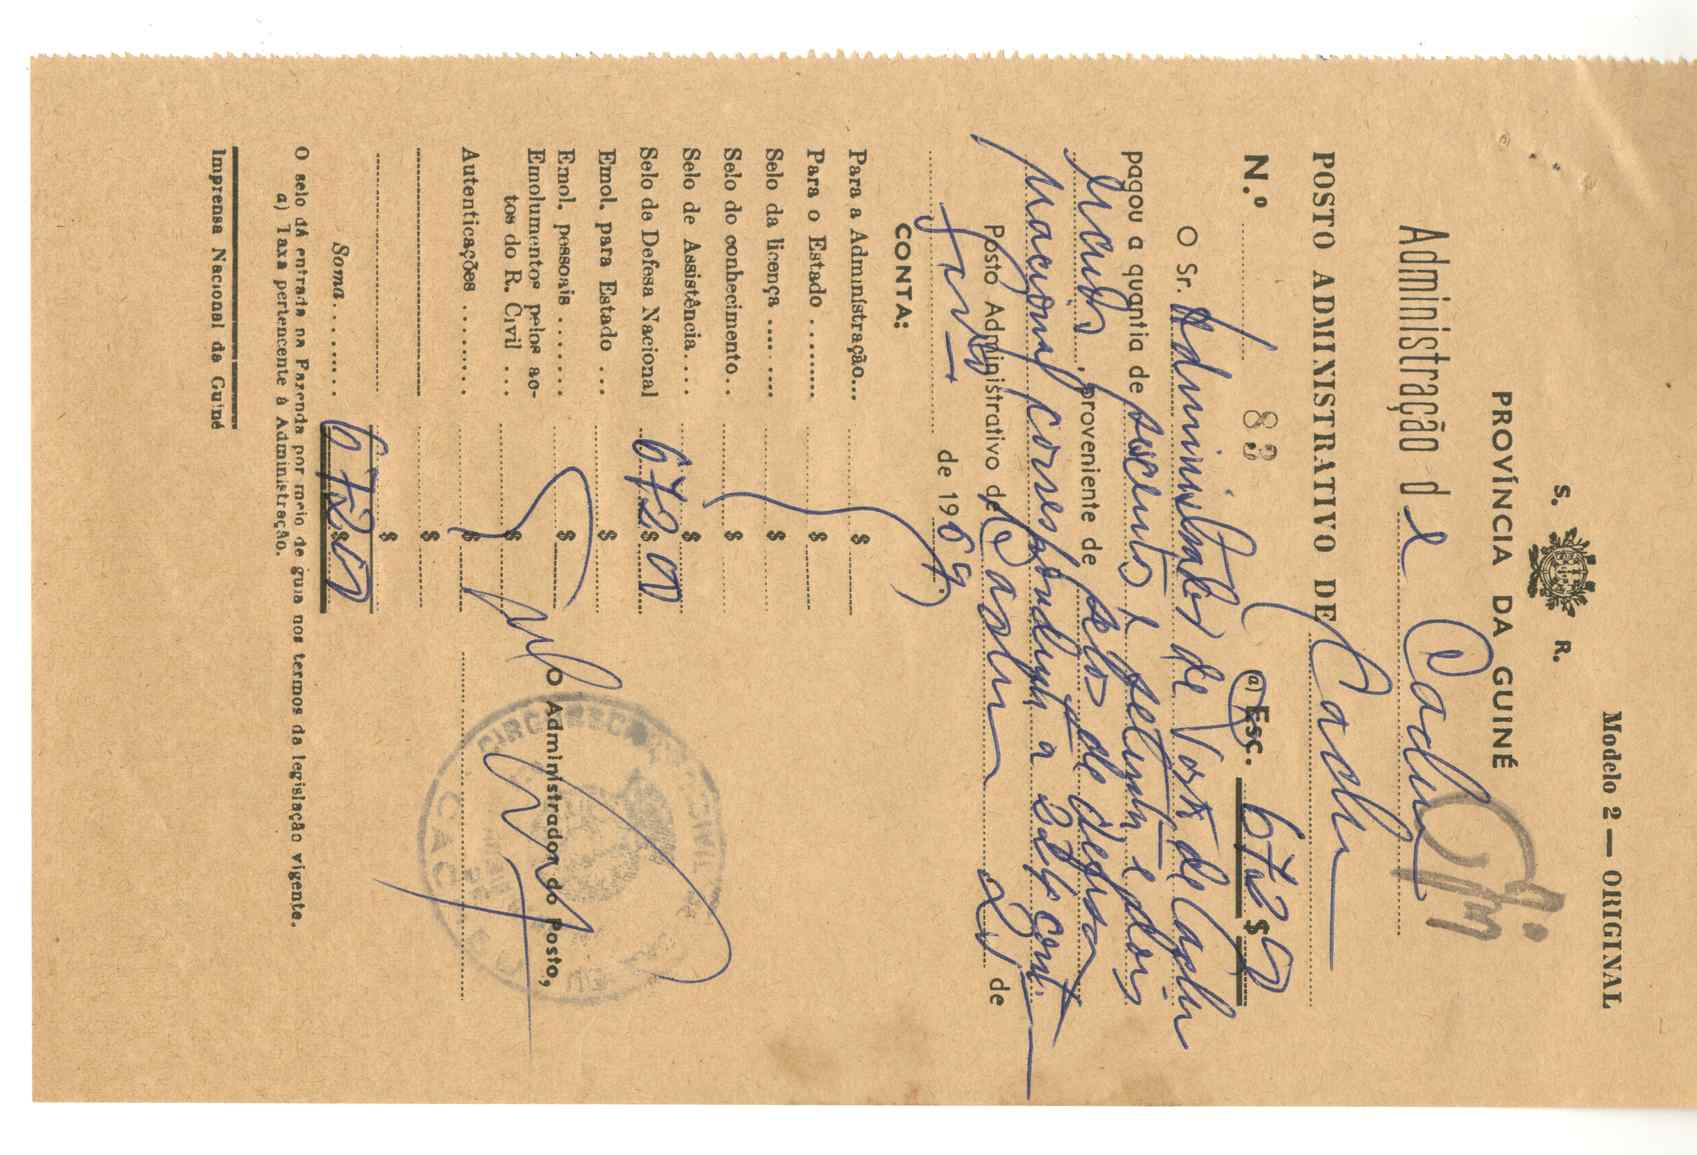 Modelo 2 — ORIGINAL
S. R.
PROVÍNCIA DA GUINÉ
Administração de Cacheu
POSTO ADMINISTRATIVO DE Cacheu
N.º 83 (a) Esc. 672$00
O Sr. Administrador do Posto de Cacheu
pagou a quantia de seiscentos e setenta e dois
escudos, proveniente de selos de defesa
nacional correspondente a 336 cont.
Posto Administrativo de Cacheu, de
de 1969.
CONTA:
Para a Administração... $
Para o Estado ........ $
Selo da licença ........ $
Selo do conhecimento.. $
Selo de Assistência.... $
Selo de Defesa Nacional 672$00
Emol. para Estado ... $
Emol. pessoais ....... $
Emolumentos pelos ac-
tos do R. Civil ... $
Autenticações ........ $
$
$
Soma....... 672$00
O Administrador do Posto,
CIRCUNSCRIÇÃO CIVIL
CACHEU
O selo dá entrada na Fazenda por meio de guia nos termos da legislação vigente.
a) Taxa pertencente à Administração.
Imprensa Nacional da Guiné